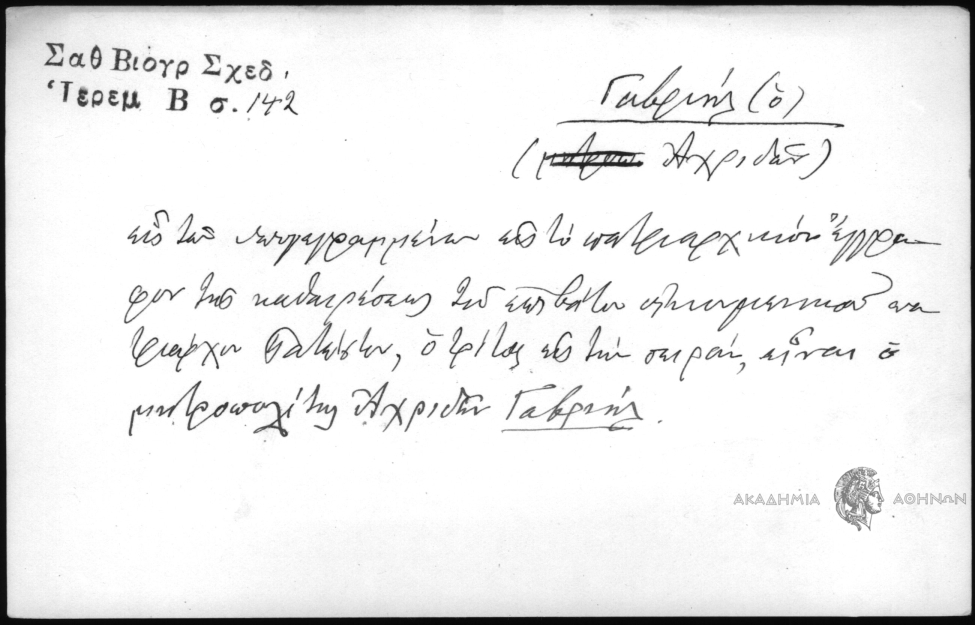 Σαθ Βιογρ Σχεδ.
Ἱερεμ Β σ. 142
Γαβριήλ (ὁ)
( Ἀχριδῶν)
εἷς τῶν ὑπογεγραμμένων εἰς τὸ πατριαρχικὸν ἔγγρα-
φον τῆς καθαιρέσεως τοῦ ἐπιβάτου οἰκουμενικοῦ πα
τριάρχου Παχωμίου, ὁ τρίτος εἰς τὴν σειράν, εἶναι ὁ
μητροπολίτης Ἀχριδῶν Γαβριήλ.
ΑΚΑΔΗΜΙΑ ΑΘΗΝΩΝ